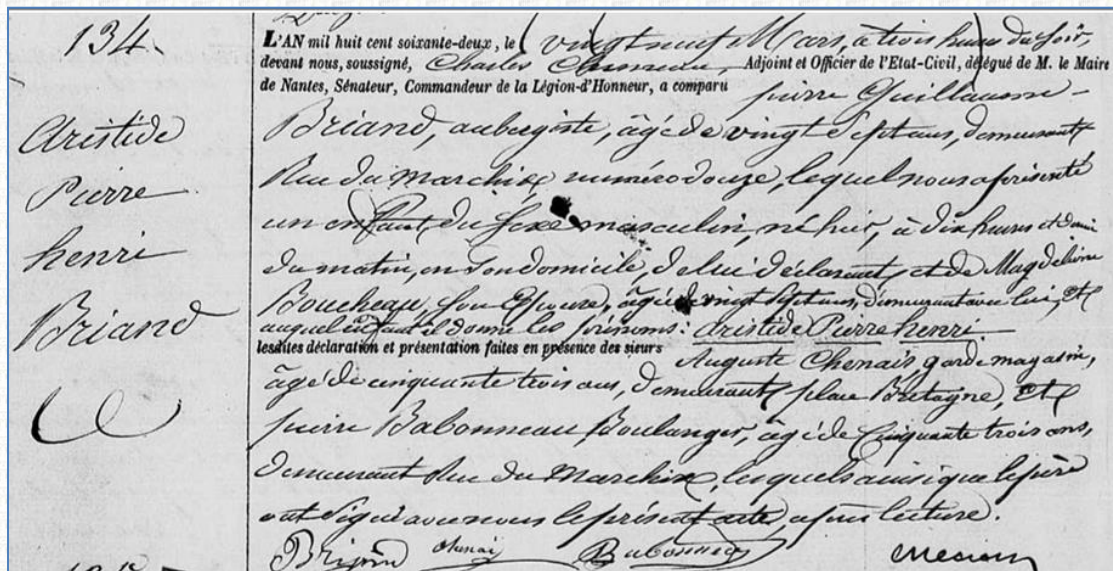 134
Aristide
Pierre
henri
Briand
L'AN mil huit cent soixante-deux, le vingt neuf Mars, à trois heures du soir,
devant nous, soussigné, Charles Adjoint et Officier de l'Etat-Civil, délégué de M. le Maire
de Nantes, Sénateur, Commandeur de la Légion-d'Honneur, a comparu pierre Guillaume
Briand, aubergiste, âgé de vingt Sept ans, demeurant
Rue du Marchix numéro douze, lequel nous a présenté
un enfant du sexe masculin, né hier, à dix heures et demi
du matin, en Son domicile, de lui déclarant, et de Magdeleine
Boucheau, Son Epouse, âgée de vingt sept ans, demeurant avec lui, Et
auquel enfant il donne les prénoms: Aristide Pierre henri
lesdites déclaration et présentation faites en présence des sieurs Auguste Chenais, garde magasin,
âgé de cinquante trois ans, demeurant place Bretagne, Et
pierre Babonneau Boulanger, âgé de Cinquante trois ans,
demeurant Rue du Marchix, lesquels ainsi que le père
ont Signé avec nous le présent acte, après lecture.
Briand Chenais Babonneau